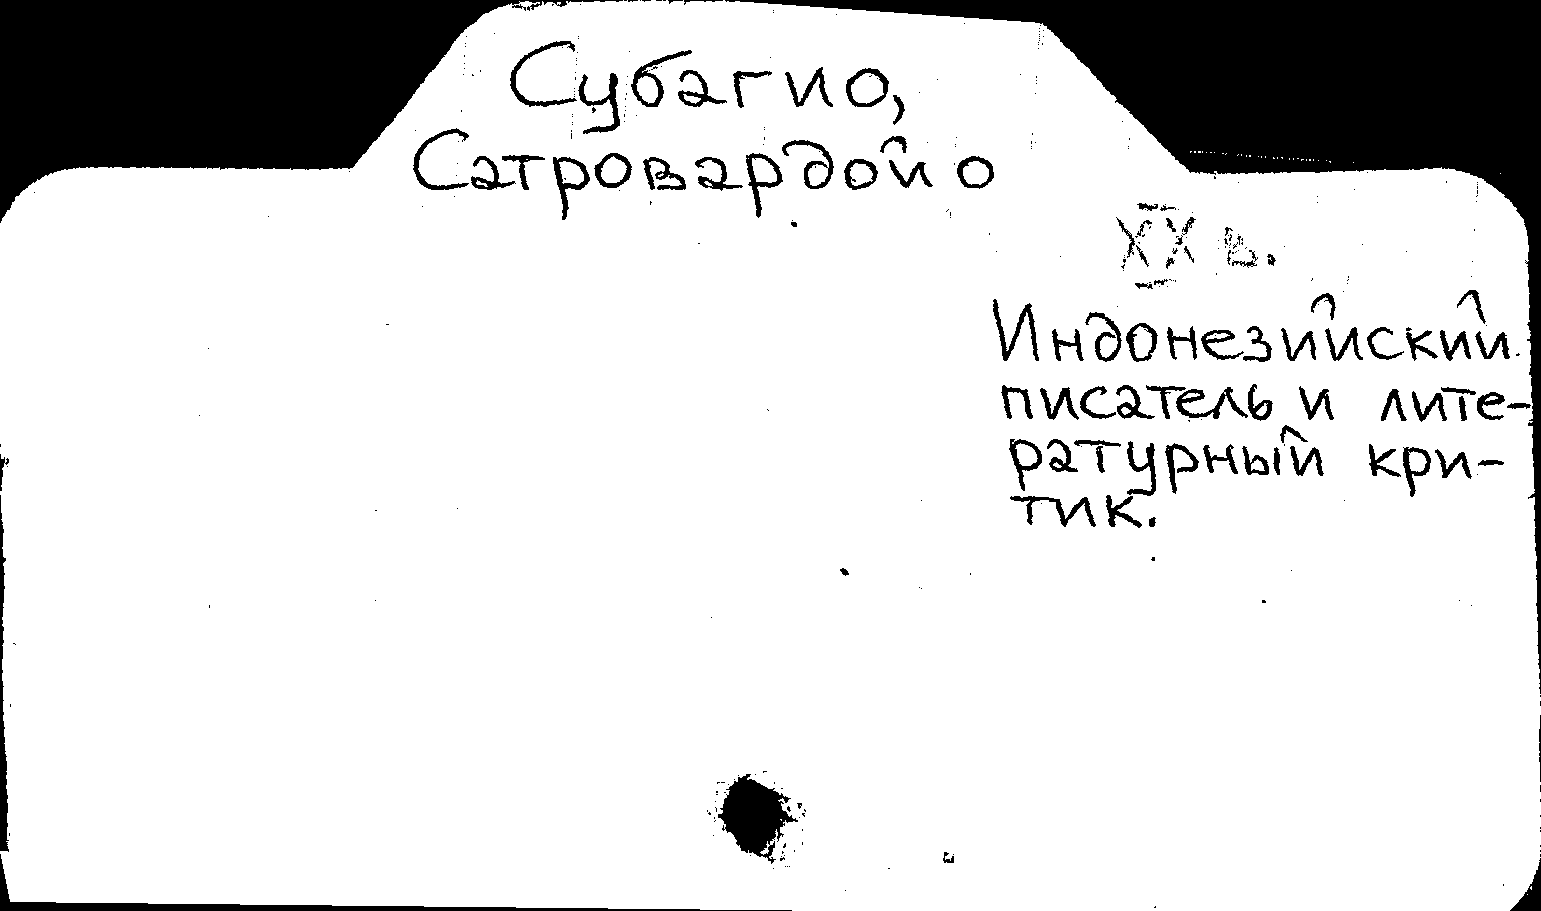 Субагио,
Сатровардойо
XX в.
Индонезийский
писатель и лите-
ратурный кри-
тик.